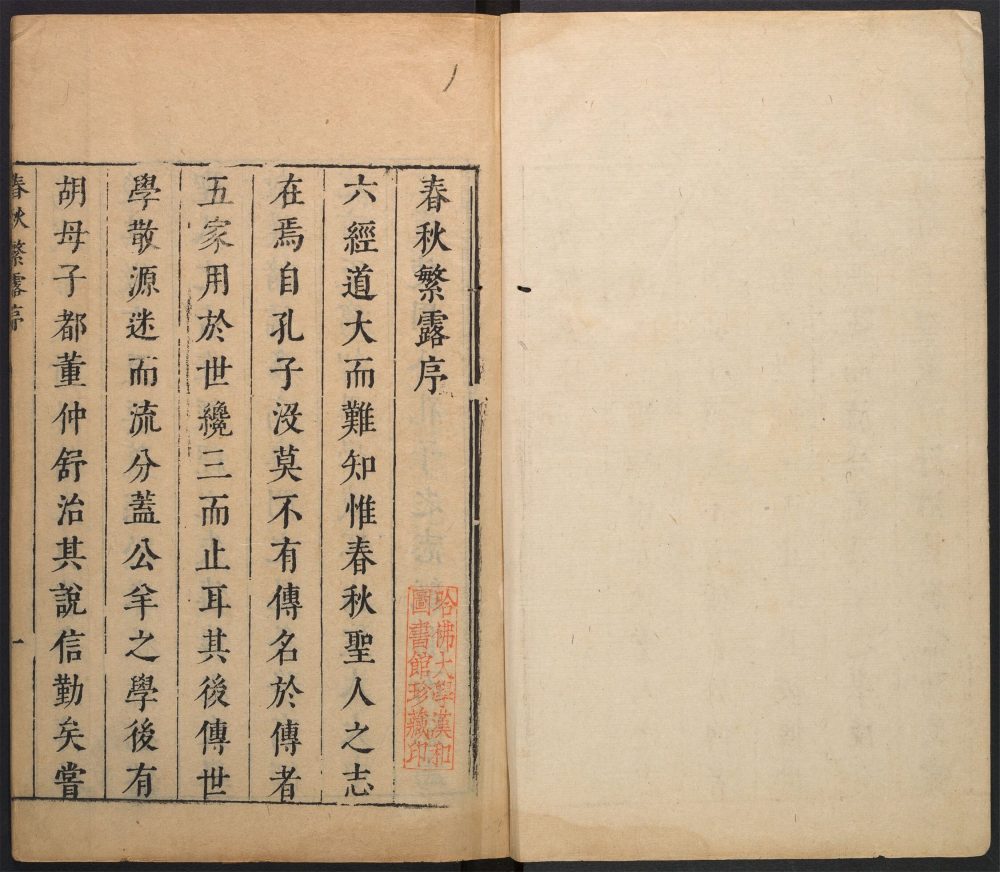 春秋繁露序
六經道大而難知惟春秋聖人之志
在焉自孔子没莫不有傳名於傳者
五家用於世纔三而止耳其後傳世
學散源迷而流分蓋公羊之學後有
胡母子都董仲舒治其說信勤矣嘗
春秋繁露序
一
哈佛大學漢和
圖書館珍藏印